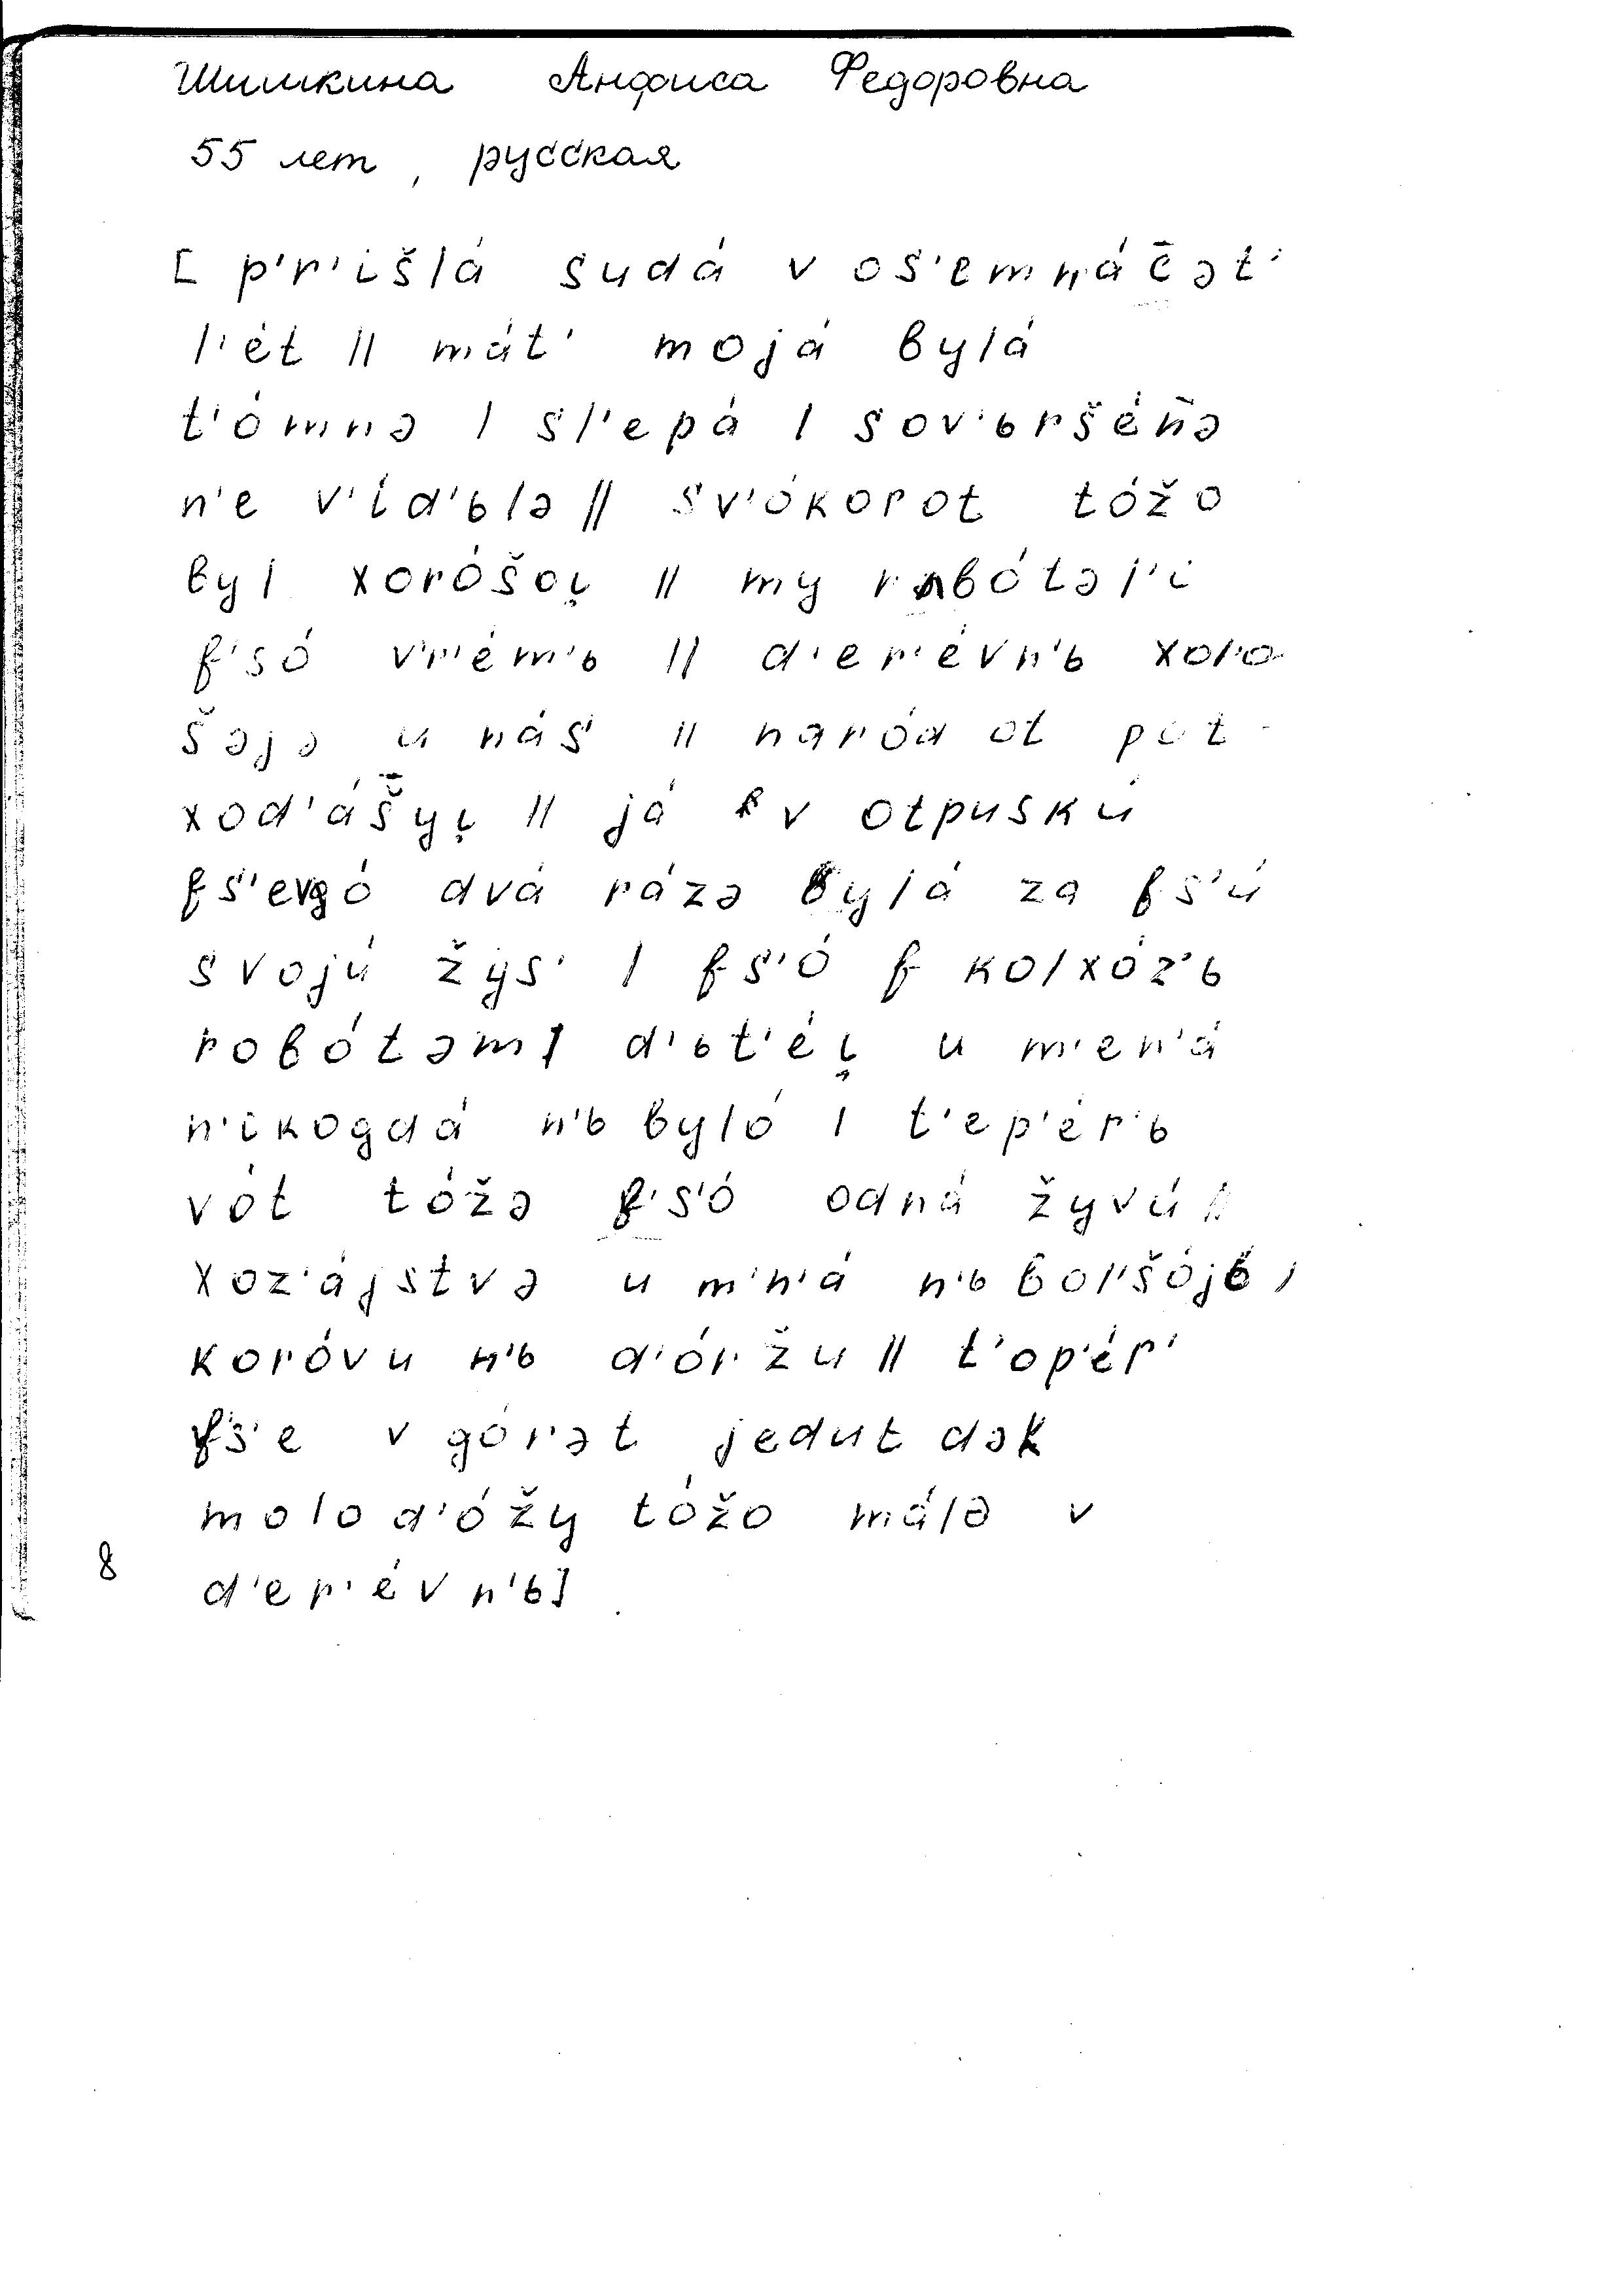 Шишкина Анфиса Федоровна
55 лет, русская
[ p'r'išlá sudá v os'emnáč̄ət'
l'ét || mát' mojá bylá
t'ómnə | sl'epá | sov'ьršén̄ə
n'e v'íd'ьlə || sv'ókorot tóžo
byl xoróšoi̯ || my rʌbótəl'i
f's'ó vr'ém'ь || d'er'évn'ь xoro
šəjə u nás || naród ot pot-
xod'áš̄yi̯ || já v otpuskú
fs'evgó dvá rázə bylá za fs'ú
svojú žys' | fs'ó f kolxóz'ь
robótəm] d'ьt'éi̯ u m'en'á
n'ikogdá n'ь byló | t'ep'ér'ь
vót tóžə f's'ó odná žyvú ||
xoz'ájstvə u m'n'á n'ь bol'šójь |
koróvu n'ь d'óržu || t'op'ér'
fs'e v górət jedut dək
molod'óžy tóžo málə v
d'er'évn'ь]
8